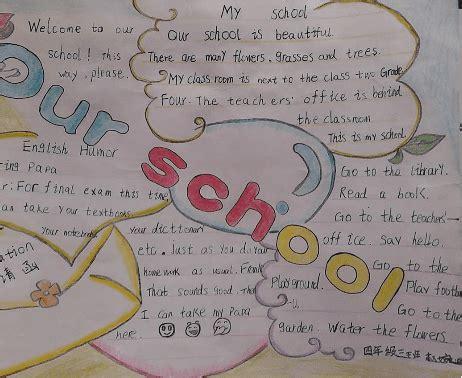 My school
Our school is beautiful.
There are many flowers, grasses and trees.
My class room is next to the class two Grade
Four. The teachers' office is behind
the classroom
This is my school.
Welcome to our
school! this
way, please.
Our school
English Humor
ring Papa
r: For final exam this time,
an take your textbooks,
your notebooks
your dictionary
etc. Just as you do your
home work as usual. Frank:
That sounds good. Then
I can take my Papa
here.
ation
请函
Go to the library.
Read a book.
Go to the teachers'
office. Say hello.
Go to the
Playground.
Play footba
Go to the
garden. Water the flowers
四年级三班